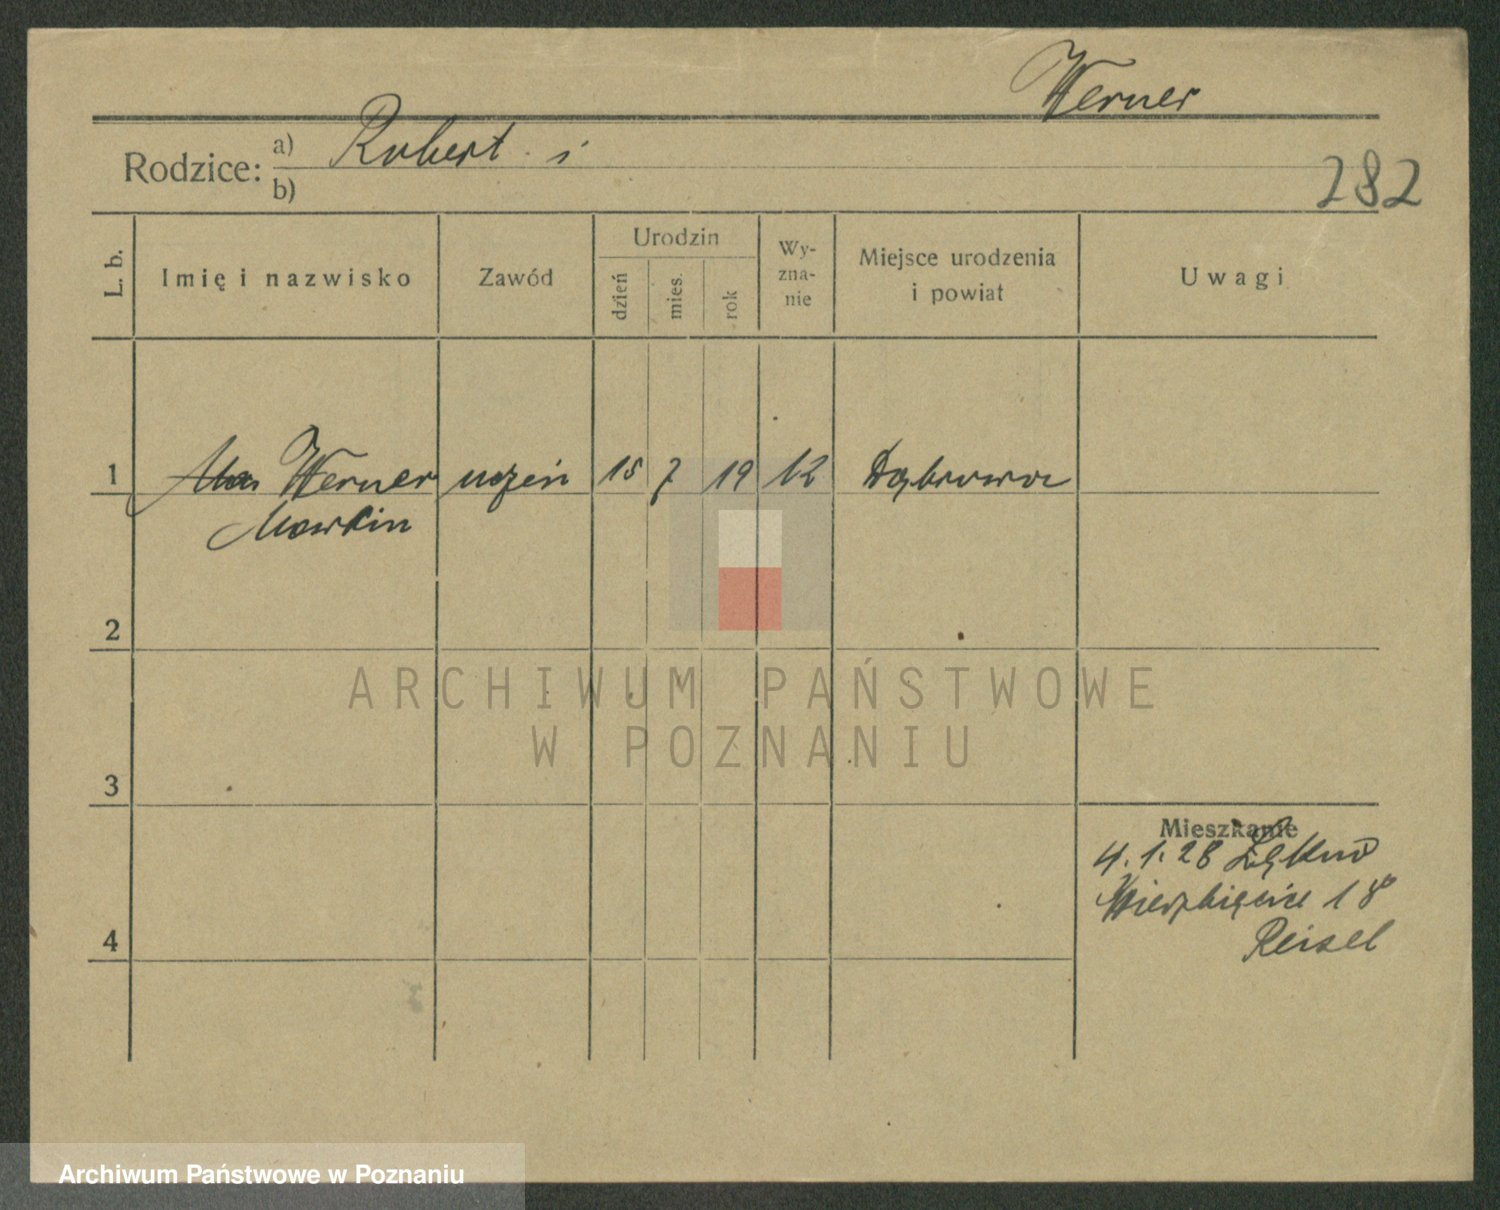 Werner
Rodzice: a) Robert i
b)
282
L. b.
Imię i nazwisko
Zawód
Urodzin
dzień
mies.
rok
Wy-
zna-
nie
Miejsce urodzenia
i powiat
Uwagi
1 Werner uczeń 15 7 19 Dąbrowa
2
3
4
Mieszkanie
4.1.28
18
Reisel
ARCHIWUM PAŃSTWOWE
W POZNANIU
Archiwum Państwowe w Poznaniu